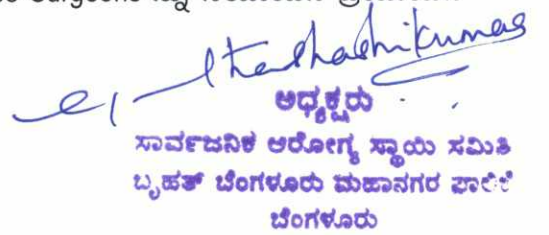 Surgeons
ಅಧ್ಯಕ್ಷರು
ಸಾರ್ವಜನಿಕ ಆರೋಗ್ಯ ಸ್ಥಾಯಿ ಸಮಿತಿ
ಬೃಹತ್ ಬೆಂಗಳೂರು ಮಹಾನಗರ ಪಾಲಿಕೆ
ಬೆಂಗಳೂರು